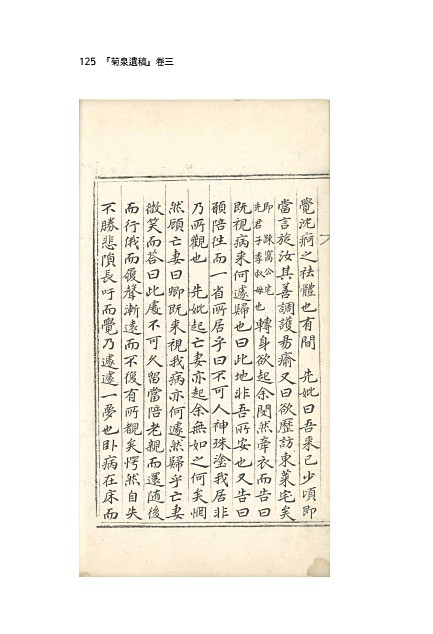 125 『菊泉遺稿』卷三
覺沈疴之祛體也有間 先妣曰吾來已少頃即
當言旋汝其善調護昜瘉又曰欲歷訪東萊宅矣
即 踈窩公宅
先君子季叔母也 轉身欲起余閔然牽衣而告曰
既視病來何遽歸也曰此地非吾所安也又告曰
願陪往而一省所居乎曰不可人神殊塗我居非
乃所觀也 先妣起亡妻亦起余無如之何矣惘
然顧亡妻曰卿既来視我病亦何遽然歸乎亡妻
微笑而荅曰此處不可久留當陪老親而還随後
而行俄而履聲漸遠而不復有所覩矣愕然自失
不勝悲隕長吁而覺乃遽遽一夢也卧病在床而